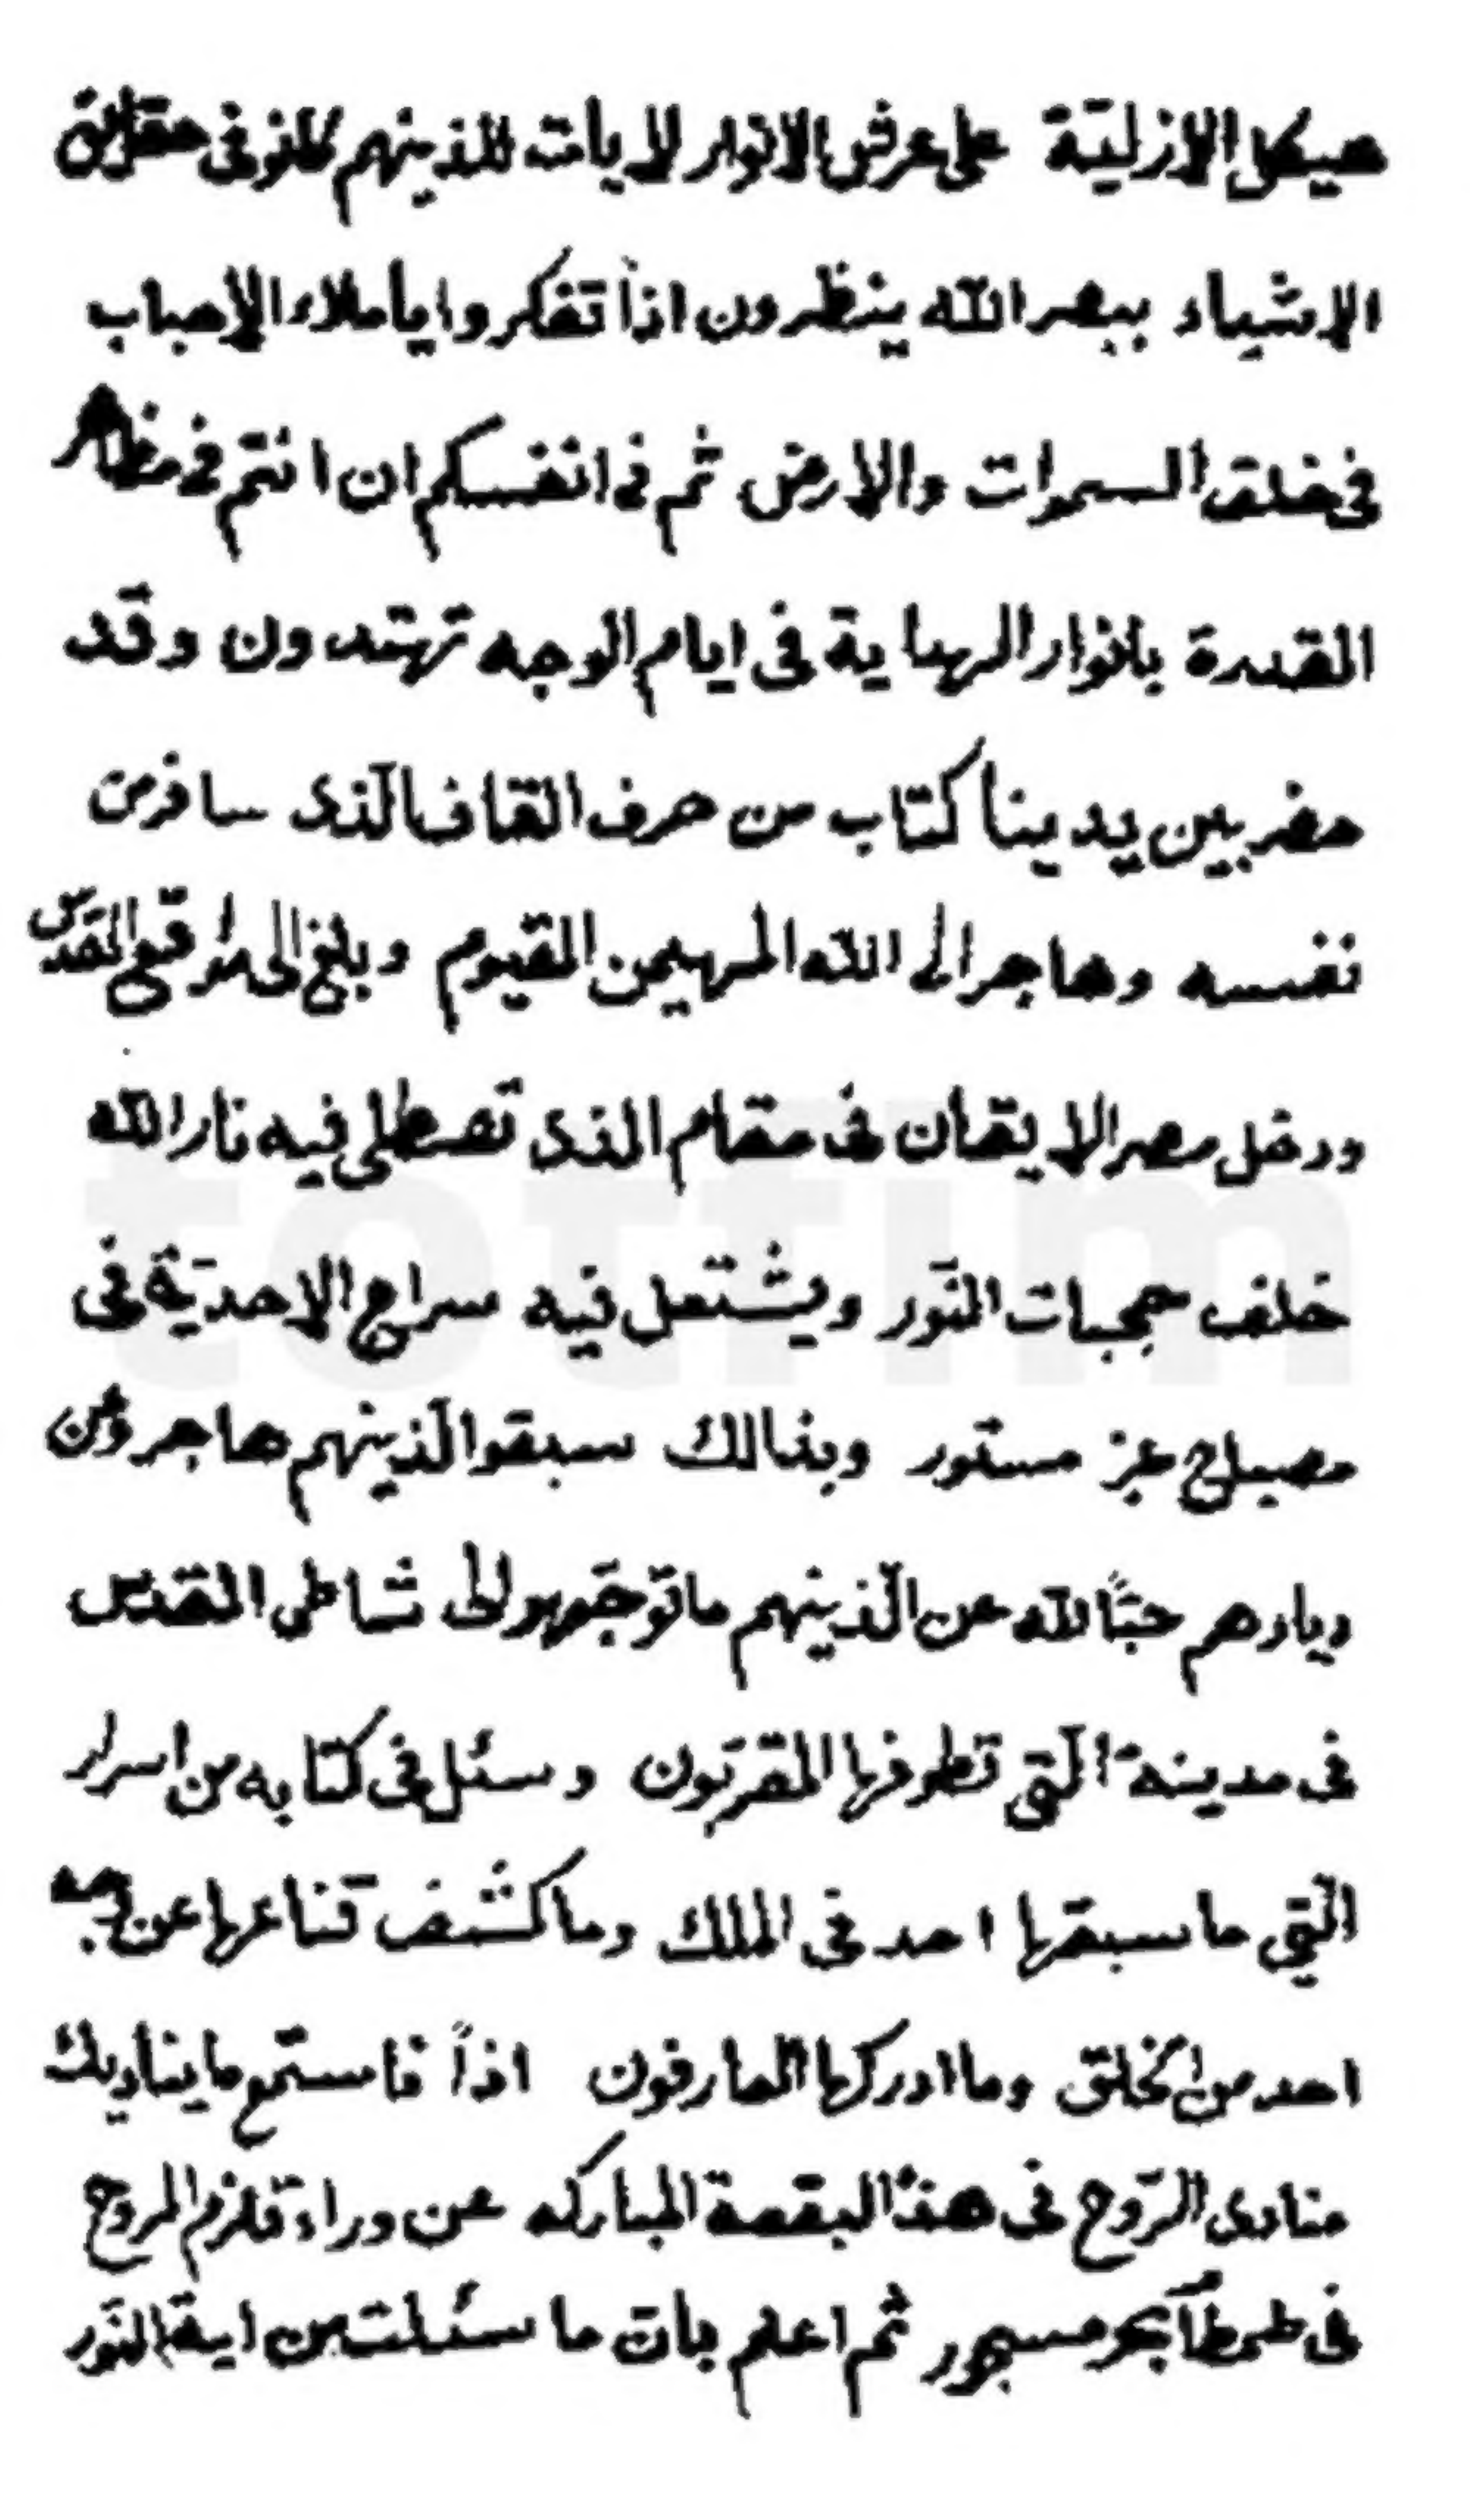 هيكل الازليّة على عرش الانوار لايات للذينهم كانو فى حقايق
الاشياء ببصر الله ينظرون اذاً تفكروا يا ملاء الأحباب
فى خلق السموات والارض ثم فى انفسكم ان انتم فى مظاهر
القدرة بانوار الهداية فى ايام الوجه تهتدون وقد
حضر بين يدينا كتاب من حرف القاف الّذى سافر من
نفسه وهاجر الى الله المهيمن القيوم وبلغ الى موقع القدس
ودخل مصر الايقان فى مقام الذى تصطلى فيه نار الله
خلف حجبات النّور ويشتعل فيه سراج الاحديّة فى
مصباح عز مستور وبذالك سبقوا الّذينهم هاجروا من
ديارهم حبّاً لله عن الّذينهم ما توجّهوا الى شاطى القدس
فى مدينة الّتى تطوفها المقربّون وسئل فى كتابه من اسرار
الّتى ما سبقها احد فى الملك وما كشف قناعها عن وجه
احد من الخلق وما ادركها العارفون اذاً فاستمع ما يناديك
منادى الرّوح فى هذه البقعة المباركه عن وراء قلزم الروح
فى طمطام بحر مسجور ثم اعلم بان ما سئلت من اية النّور